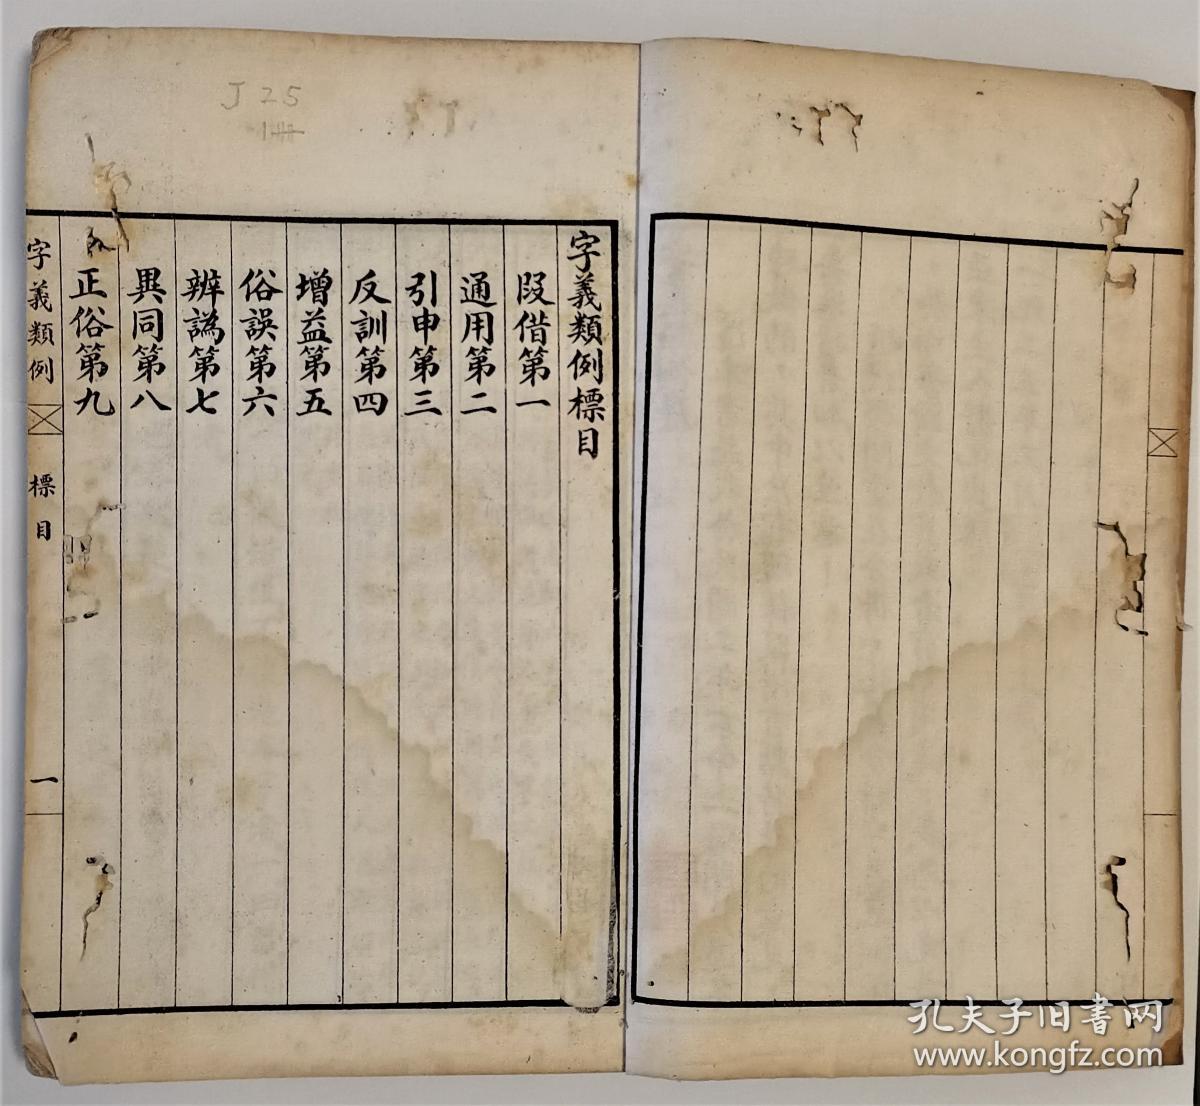 字義類例標目
叚借第一
通用第二
引申第三
反訓第四
增益第五
俗誤第六
辨譌第七
異同第八
正俗第九
字義類例
標目
一
J25
孔夫子旧书网
www.kongfz.com